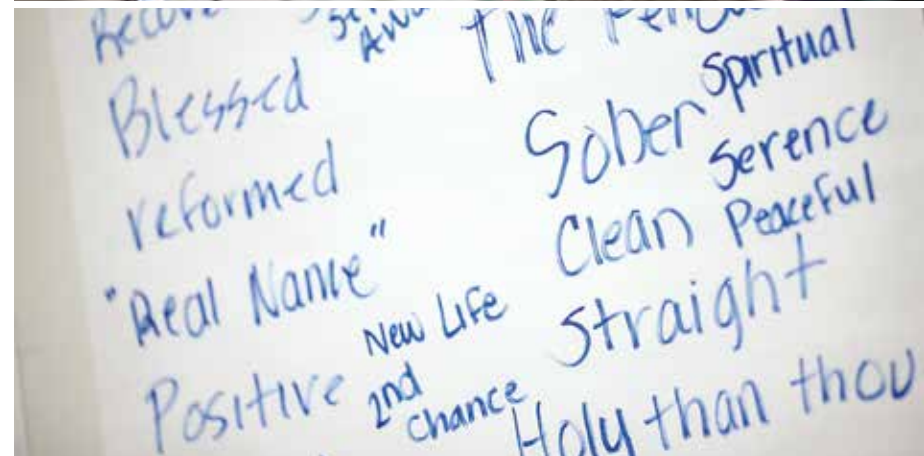 Blessed
reformed
"Real Name"
Positive
New Life
2nd
Chance
The
Sober
Clean
Straight
Holy than thou
Spiritual
Serence
Peaceful